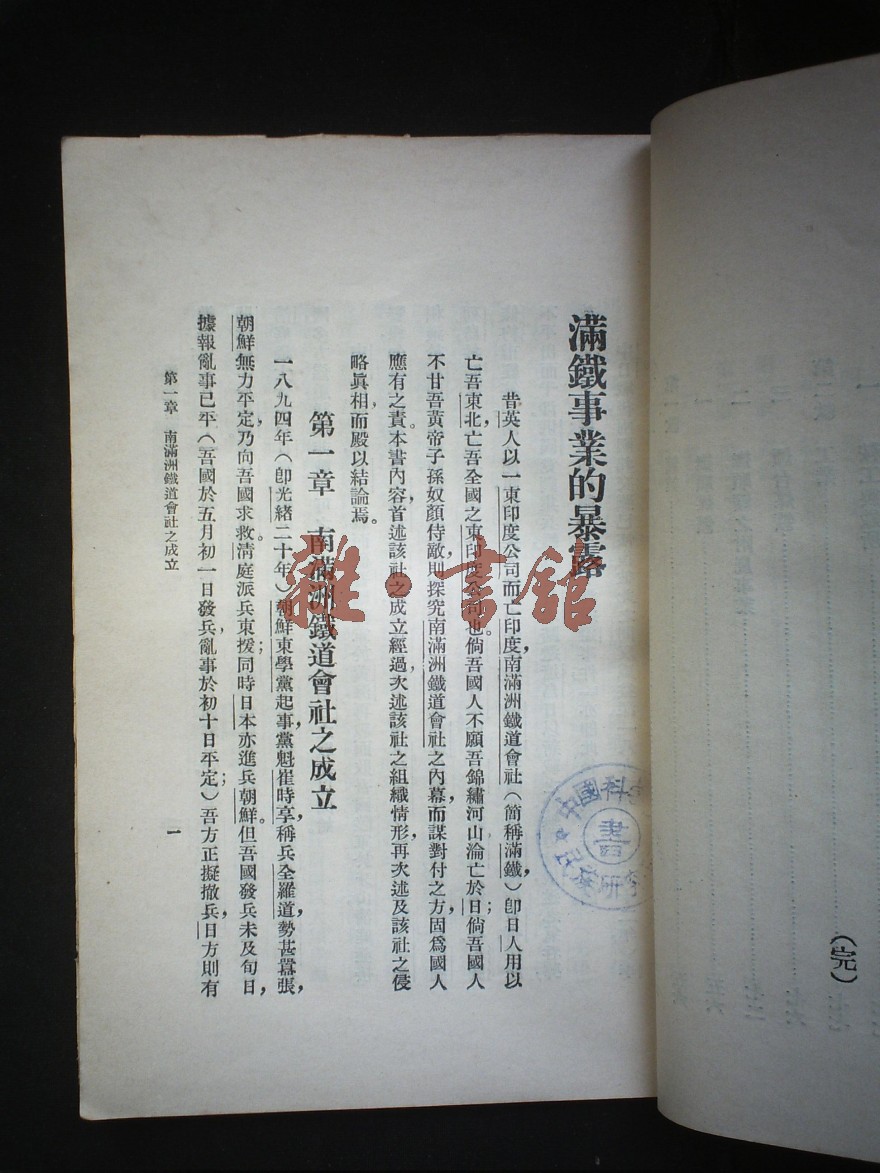 滿鐵事業的暴露
昔英人以一東印度公司而亡印度，南滿洲鐵道會社（簡稱滿鐵）卽日人用以
亡吾東北，亡吾全國之東印度公司也。倘吾國人不願吾錦繡河山淪亡於日；倘吾國人
不甘吾黃帝子孫奴顏侍敵，則探究南滿洲鐵道會社之內幕而謀對付之方，固爲國人
應有之責。本書內容，首述該社之成立經過，次述該社之組織情形，再次述及該社之侵
略眞相，而殿以結論焉。
第一章　南滿洲鐵道會社之成立
一八九四年（卽光緒二十年）朝鮮東學黨起事，黨魁崔時享，稱兵全羅道，勢甚囂張，
朝鮮無力平定，乃向吾國求救。清庭派兵東援；同時日本亦進兵朝鮮。但吾國發兵未及旬日，
據報亂事已平（吾國於五月初一日發兵，亂事於初十日平定）；吾方正擬撤兵，日方則有
第一章　南滿洲鐵道會社之成立
一
（完）
中國科
書
研究
雜·言館